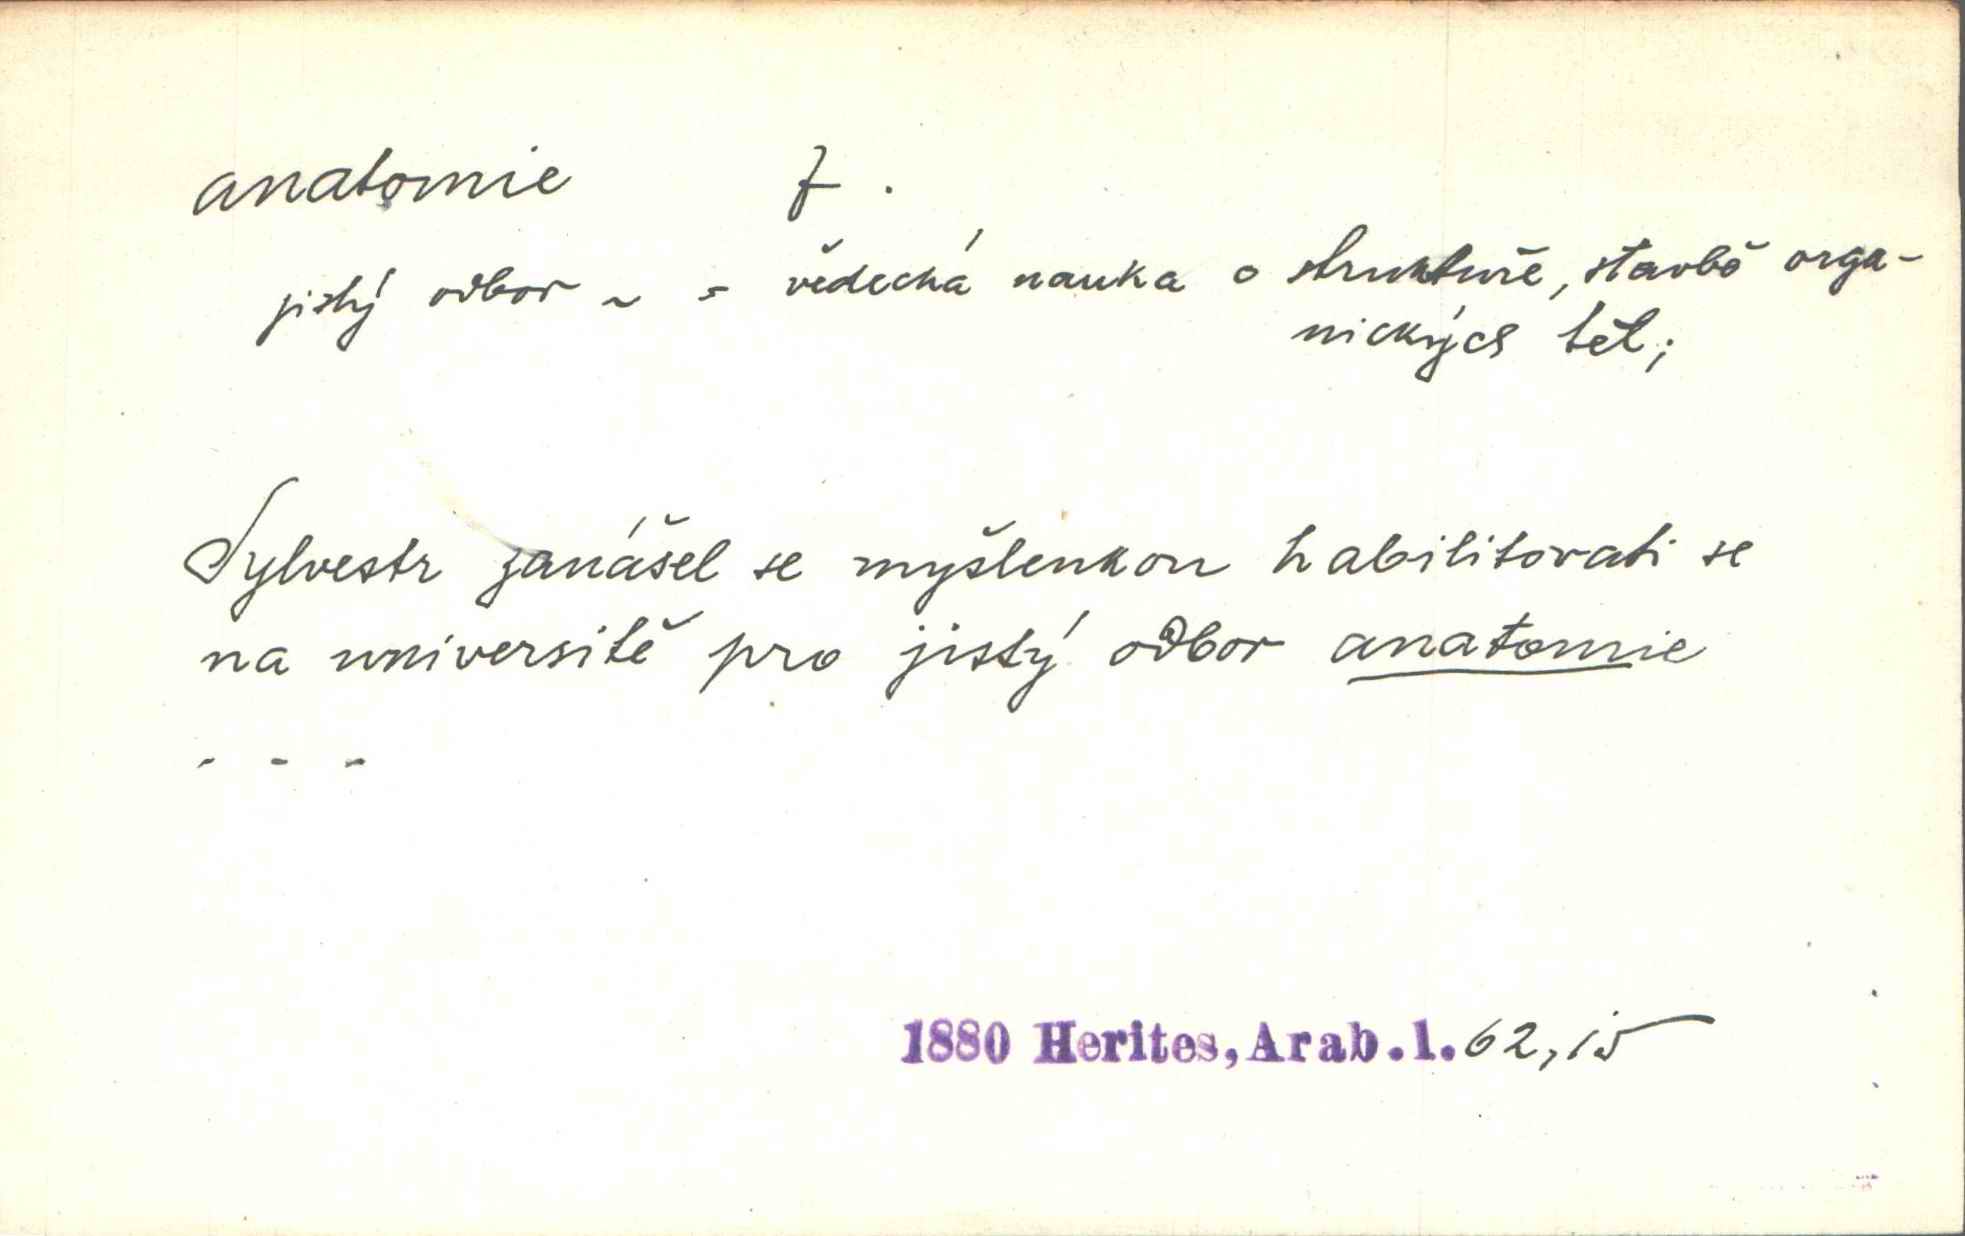 anatomie f.
jistý odbor ~ = vědecká nauka o struktuře, stavbě orga-
nických těl;
Sylvestr zanášel se myšlenkou habilitovati se
na universitě pro jistý odbor anatomie
- - -
1880 Herites, Arab.1. 62,15